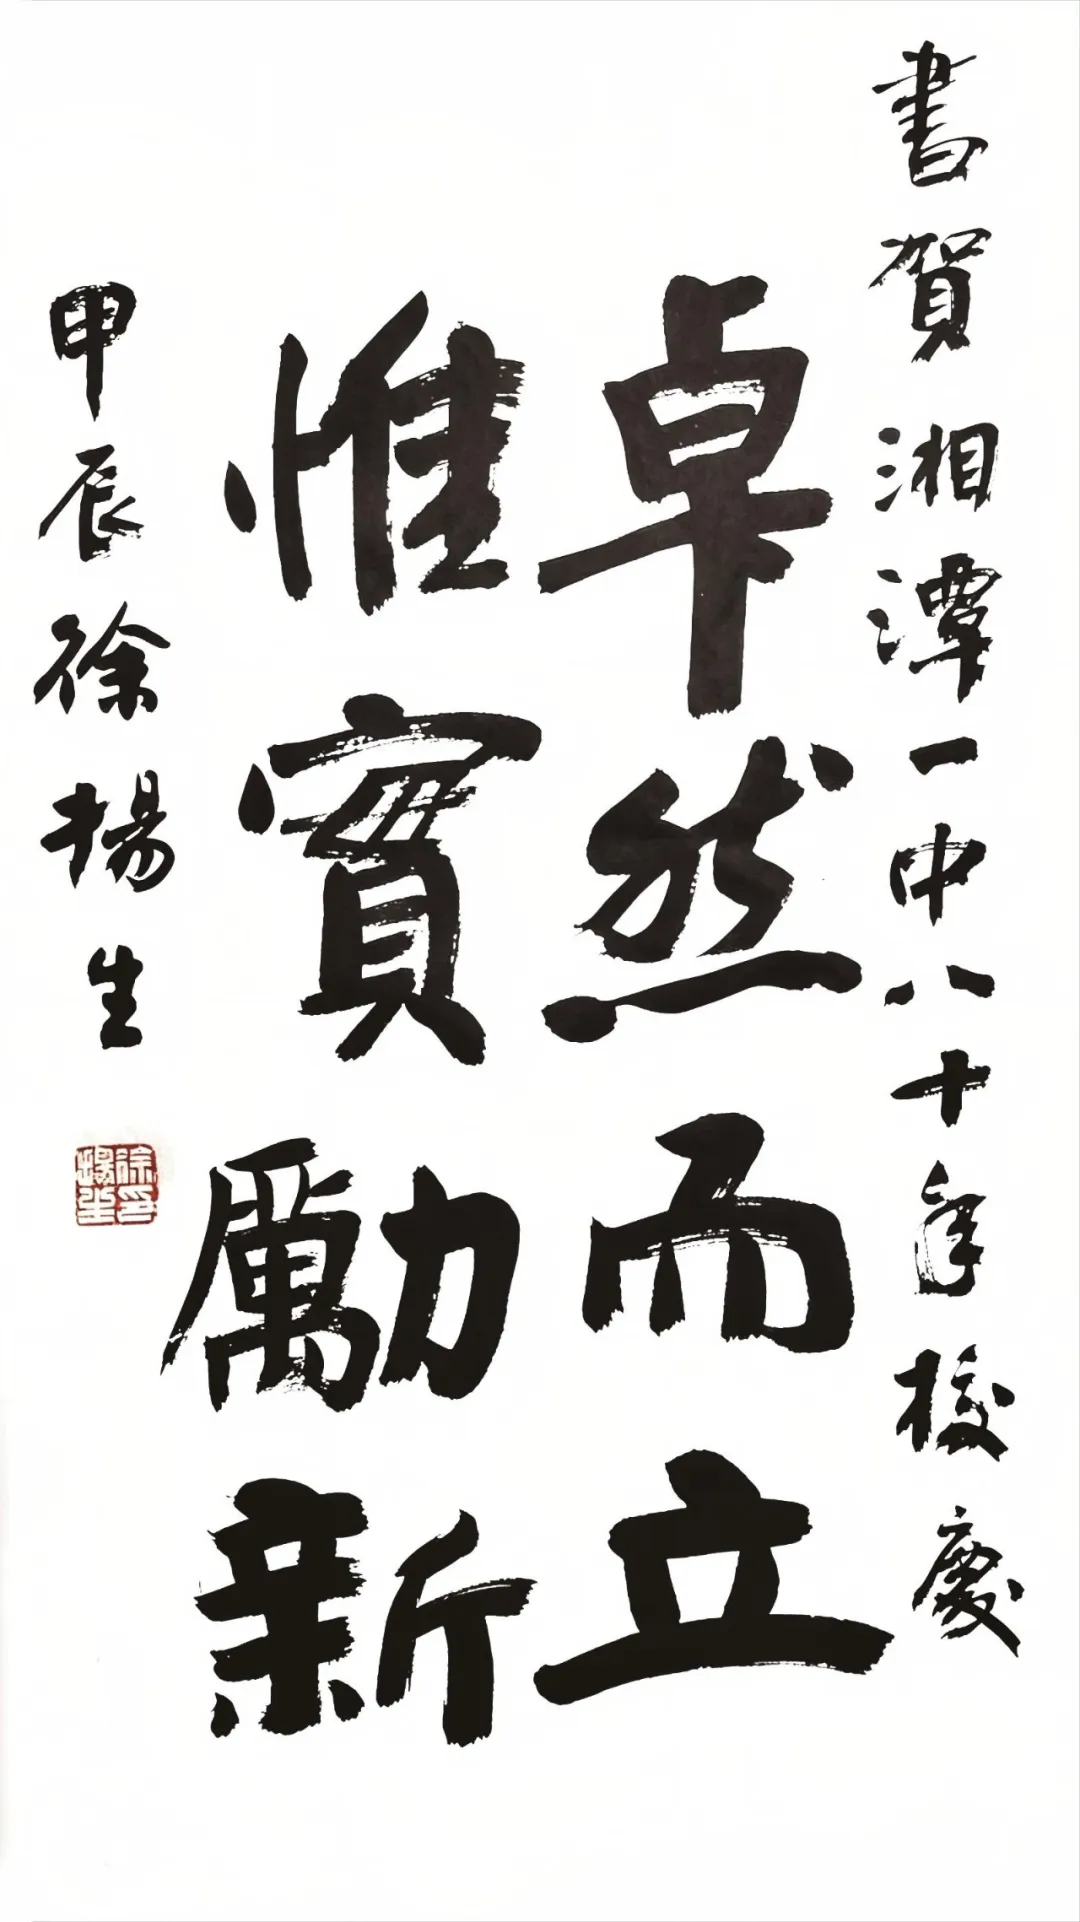 書賀湘潭一中八十年校慶
卓然而立
惟實勵新
甲辰徐揚生
徐揚生印